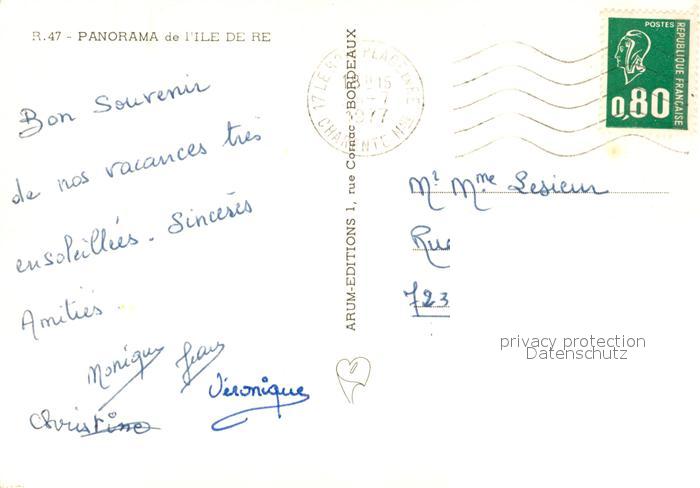 R.47 - PANORAMA de l'ILE DE RE
Bon Souvenir
de nos vacances très
ensoleillées. Sincères
Amitiés.
Monique Jean
Véronique
Christine
ARUM-EDITIONS 1, rue Cornac BORDEAUX
CHARENTE Mme
POSTES
RÉPUBLIQUE FRANÇAISE
0,80
Mr Mme Lesieur
Rue
723
privacy protection
Datenschutz